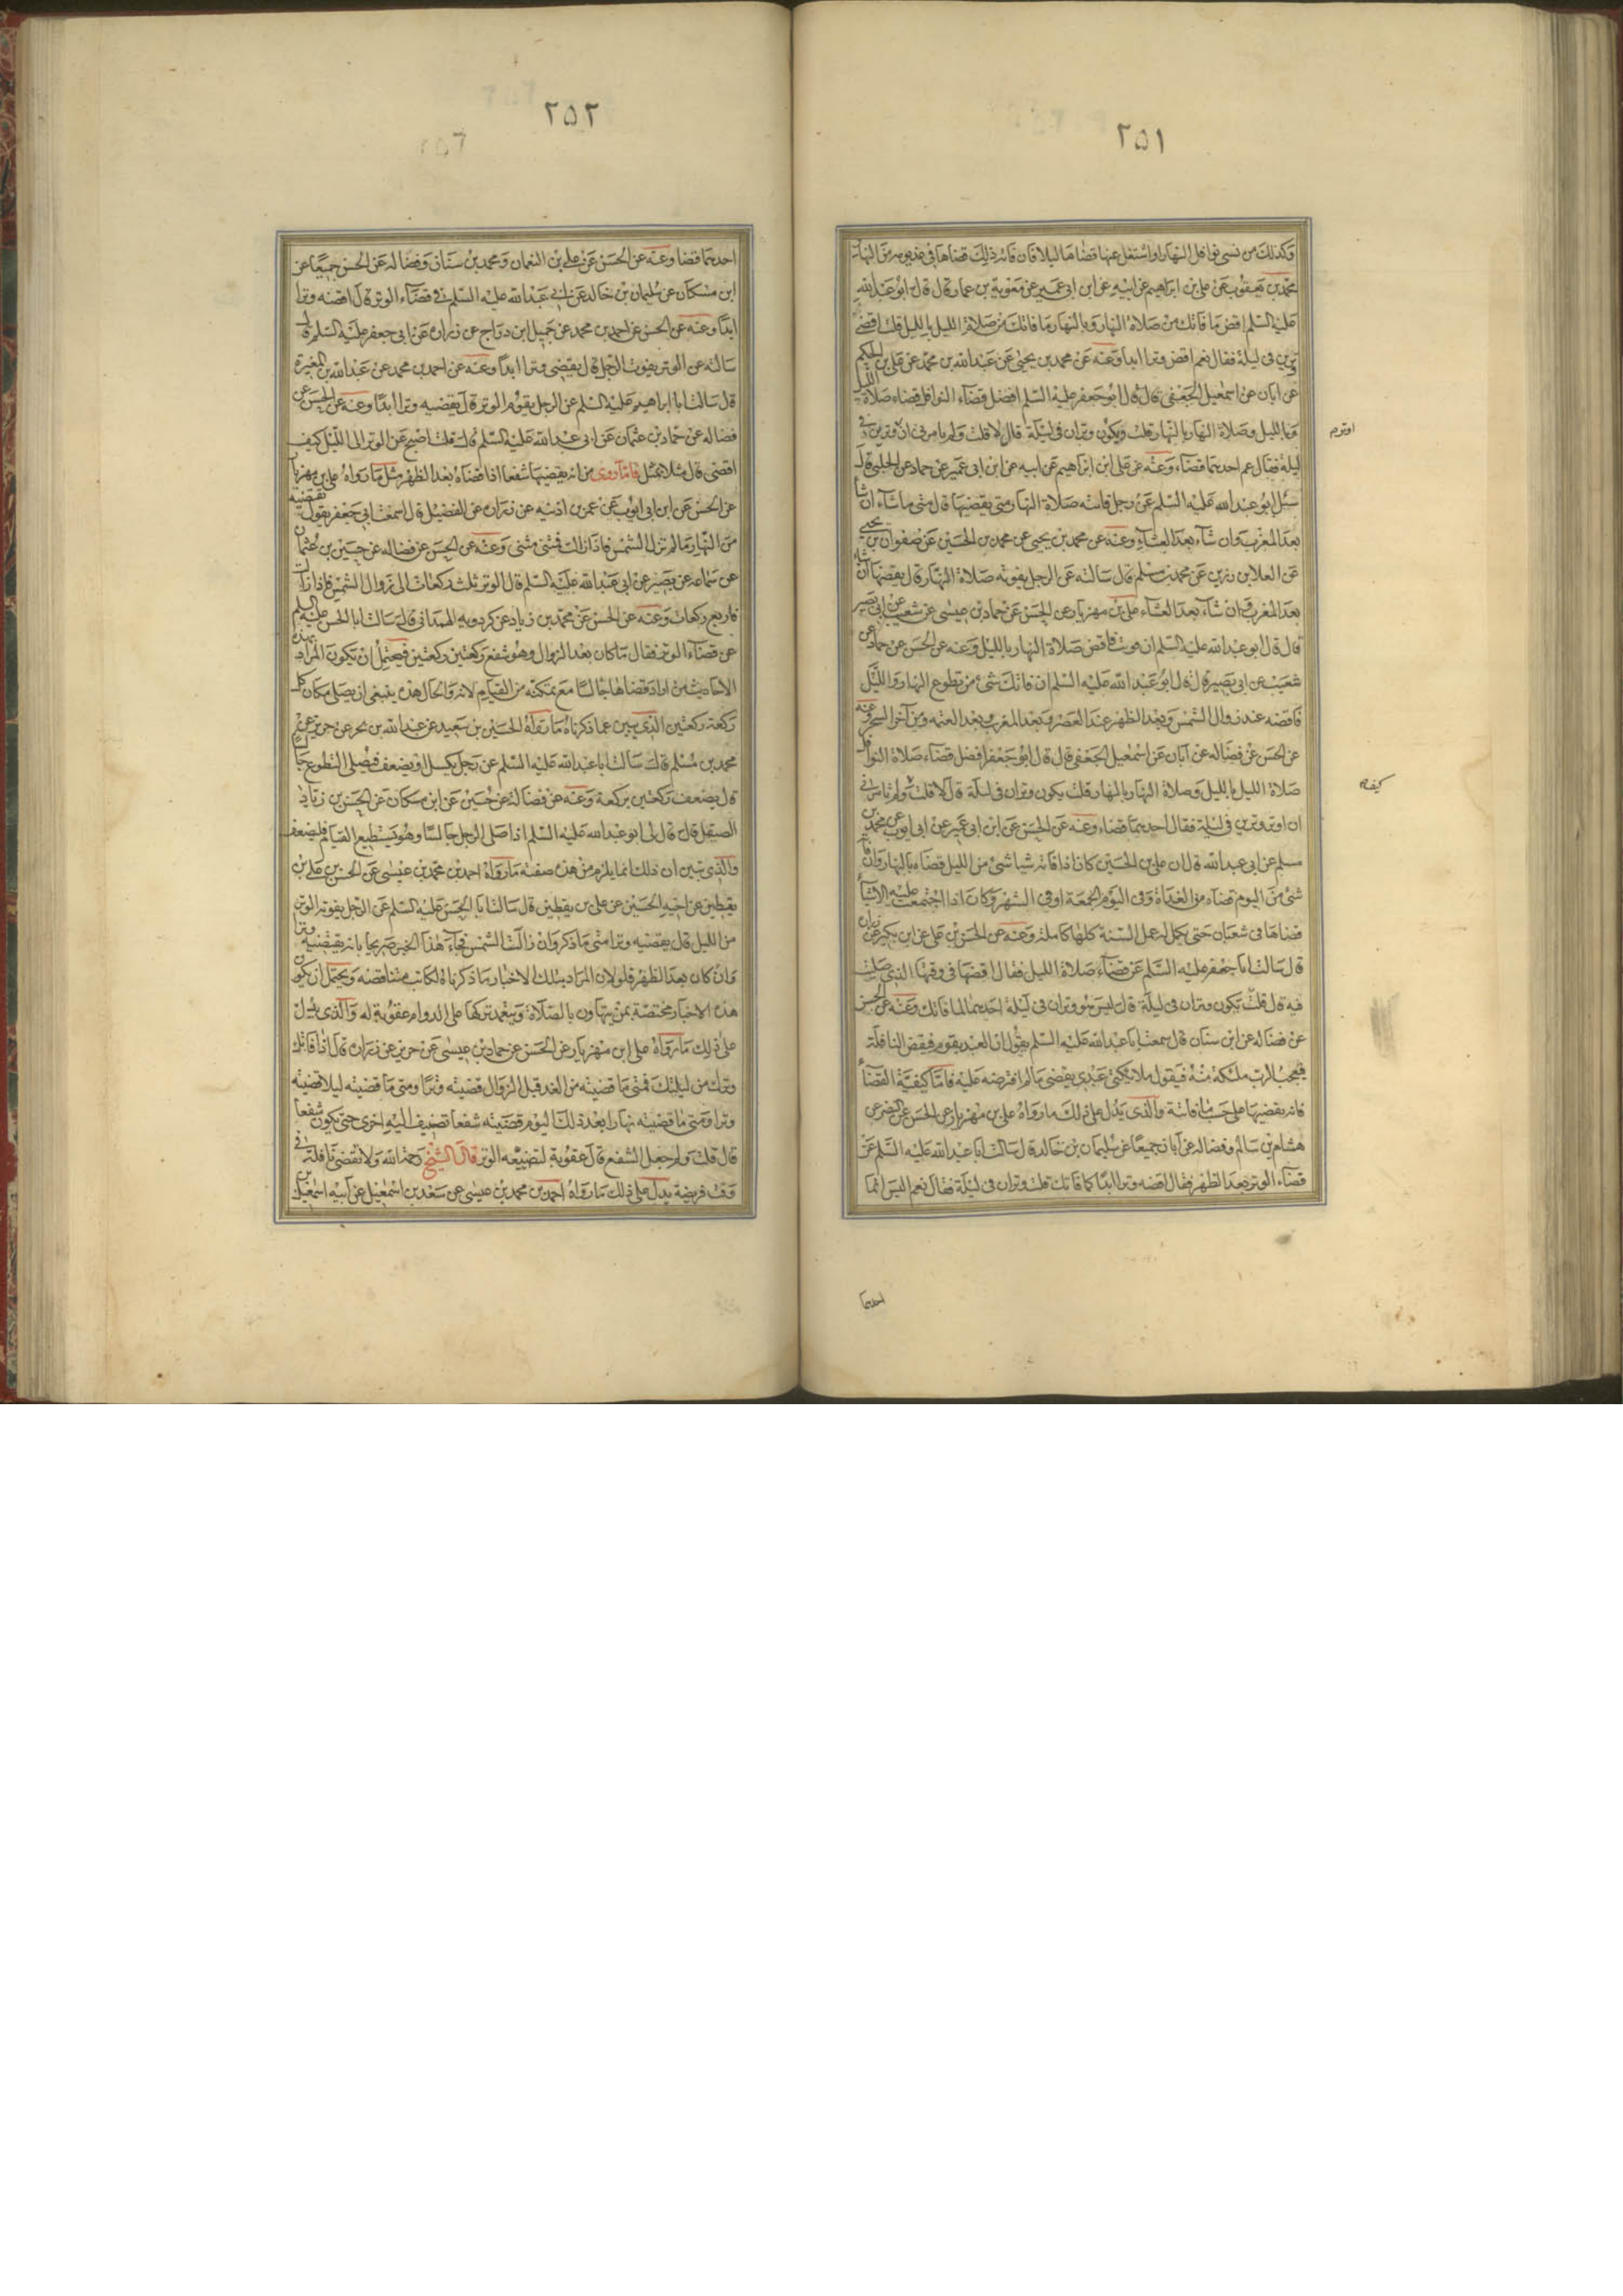 ٢٥١
وكذلك من نسى نوافل النهار او اشتغل عنها قضاها ليلا فان فاته ذلك قضاها فى غد يومه من النهار
محمد بن يعقوب عن على بن ابراهيم عن ابيه عن ابن ابى عمير عن معوية بن عمار قال قال ابو عبد الله
عليه السلم اقض ما فاتك من صلاة النهار وبالنهار ما فاتك من صلاة الليل بالليل قلت اقضى
وترين فى ليلة فقال نعم اقض وترا ابدا وعنه عن محمد بن يحيى عن عبد الله بن محمد عن على بن الحكم
عن ابان عن اسمعيل الجعفى قال قال ابو جعفر عليه السلم افضل قضاء النوافل قضاء صلاة الليل
وبالليل وصلاة النهار بالنهار قلت ويكون وتران فى ليلة قال لا قلت ولم يامرنى ان وترين فى
اوترم
ليلة فقال عم احديهما قضاء وعنه عن على ابن ابراهيم عن ابيه عن ابن ابى عمير عن حماد عن الحلبى قال
سئل ابو عبد الله عليه السلم عن رجل فاتته صلاة النهار متى يقضيها قال متى ما شاء ان شا
بعد المغرب وان شاء بعد العشاء وعنه عن محمد بن يحيى عن محمد بن الحسين عن صفوان بن يحيى
عن العلا بن رزين عن محمد بن مسلم قال سالته عن الرجل يفوته صلاة النهار قال يقضيها ان شاء
بعد المغرب وان شاء بعد العشاء على بن مهزيار عن الحسن عن حماد بن عيسى عن شعيب عن ابى بصير
قال قال ابو عبد الله عليه السلم ان فوت فاقض صلاة النهار بالليل وعنه عن الحسن عن حماد عن
شعيب عن ابى بصير قال قال ابو عبد الله عليه السلم ان فاتك شئ من تطوع النهار والليل
فاقضه عند زوال الشمس وبعد الظهر عند العصر وبعد المغرب وبعد العتمه ومن آخر السحر وعنه
عن الحسن عن فضاله عن ابان عن اسمعيل الجعفى قال قال ابو جعفر افضل قضاء صلاة النوافل
صلاة الليل بالليل وصلاة النهار بالنهار قلت يكون وتران فى ليلة قال لا قلت ولم تامرنى
كيف
ان اوتر وترين فى ليلة فقال احديهما قضاء وعنه عن الحسن عن ابن ابى عمير عن ابى ايوب عن محمد بن
مسلم عن ابى عبد الله قال ان على بن الحسين كان اذا فاته شيا شئ من الليل قضاه بالنهار وان فاته
شئ من اليوم قضاه من الغداة وفى اليوم الجمعة او فى الشهر وكان اذا اجتمعت عليه الاشيا
قضاها فى شعبان حتى يكمل له عمل السنة كلها كاملة وعنه عن الحسن بن على عن ابن بكير عن زرارة
قال سالت ابا جعفر عليه السلم عن قضاء صلاة الليل فقال اقضها فى وقتها الذى صليت
فيه قال قلت يكون وتران فى ليلة قال ليس هو وتران فى ليلة احديهما لما فاتك وعنه عن الحسن
عن فضاله عن ابن سنان قال سمعت ابا عبد الله عليه السلم يقول ان العبد يقوم فيقض النافلة
فيعجب الرب ملئكته منه فيقول ملائكتى عبدى يقضى ما لم افترضه عليه فاما كيفية القضاء
فانه يقضيها على حسب ما فاتته والذى يدل على ذلك ما رواه على بن مهزيار عن الحسن عن النضر عن
هشام بن سالم وفضاله عن ابان جميعا عن سليمان بن خالد قال سالت ابا عبد الله عليه السلم عن
قضاء الوتر بعد الظهر فقال اقضه وترا ابدا كما فاتك قلت وتران فى ليلة فقال نعم اليس انما
احديهما
٢٥٢
احديهما قضا وعنه عن الحسن عن على بن النعمان ومحمد بن سنان وفضاله عن الحسن جميعا عن
ابن مسكان عن سليمان بن خالد عن ابى عبد الله عليه السلم فى قضاء الوتر قال اقضه وترا
ابدا وعنه عن الحسن عن احمد بن محمد عن جميل ابن دراج عن زرارة عن ابى جعفر عليه السلم قال
سالته عن الوتر يفوت الرجل قال يقضى وترا ابدا وعنه عن احمد بن محمد عن عبد الله بن المغيرة
قال سالت ابا ابراهيم عليه السلم عن الرجل يقوم الوتر قال يقضيه وترا ابدا وعنه عن الحسن عن
فضاله عن حماد بن عثمان عن ابى عبد الله عليه السلم قال قلت اصبح عن الوتر الى الليل كيف
اقضى قال مثلا بمثل فاما ما روى من انه يقضيها شفعا اذا قضاه بعد الظهر مثل ما رواه على بن مهزيار
عن الحسن عن ابن ابى ايوب عن عمر بن اذينه عن زرارة عن الفضيل قال سمعت ابى جعفر يقول يقضيه
من النهار ما لم تزل الشمس فاذا زالت فمثنى مثنى وعنه عن الحسن عن فضاله عن حسين بن عثمان
عن سماعه عن بصير عن ابى عبد الله عليه السلم قال الوتر ثلث ركعات الى زوال الشمس فاذا زالت
فاربع ركعات وعنه عن الحسن عن محمد بن زياد عن كردويه الهمدانى قال سالت ابا الحسن عليه السلم
عن قضاء الوتر فقال ما كان بعد الزوال وهو شفع ركعتين ركعتين فيحتمل ان يكون المراد بهذه
الاحاديث من اراد قضاها جالسا مع تمكنه من القيام لانه والحال هذه ينبغى ان يصلى مكان كل
ركعة ركعتين الذى يبين عما ذكرناه ما رواه الحسين بن سعيد عن عبد الله بن بحر عن حريز عن
محمد بن مسلم قال سالت ابا عبد الله عليه السلم عن رجل يكسل او يضعف فيصلى التطوع جالسا
قال يضعف ركعتين بركعة وعنه عن فضالة عن حسين عن ابن مسكان عن الحسن بن زياد
الصيقل قال قال لى ابو عبد الله عليه السلم اذا صلى الرجل جالسا وهو يستطيع القيام فليضعف
والذى تبين ان ذلك انما يلزم من هذه صفته ما رواه احمد بن محمد بن عيسى عن الحسن بن على بن
يقطين عن اخيه الحسين عن على بن يقطين قال سالت ابا الحسن عليه السلم عن الرجل يفوته الوتر
من الليل قال يقضيه وترا متى ما ذكر وان زالت الشمس فجاء هذا الخبر صريحا بانه يقضيه وترا
وان كان بعد الظهر فلولا ان المراد بتلك الاخبار ما ذكرناه لكانت متناقضه ويحتمل ان يكون
هذه الاخبار مختصة بمن يتهاون بالصلاة ويتعمد تركها على الدوام عقوبة له والذى يدل
على ذلك ما رواه على ابن مهزيار عن الحسن عن حماد بن عيسى عن حريز عن زرارة قال اذا فاتك
وترك من ليلتك فمتى ما قضيته من الغد قبل الزوال قضيته وترا ومتى ما قضيته ليلا قضيته
وترا ومتى ما قضيته نهارا بعد ذلك اليوم قضيته شفعا تضيف اليه اخرى حتى يكون شفعا
قال قلت ولم جعل الشفع قال عقوبة لتضييعه الوتر قال الشيخ رحمه الله ولا تقضى نافلة فى
وقت فريضة يدل على ذلك ما رواه احمد بن محمد بن عيسى عن سعد بن اسمعيل عن ابيه اسمعيل بن